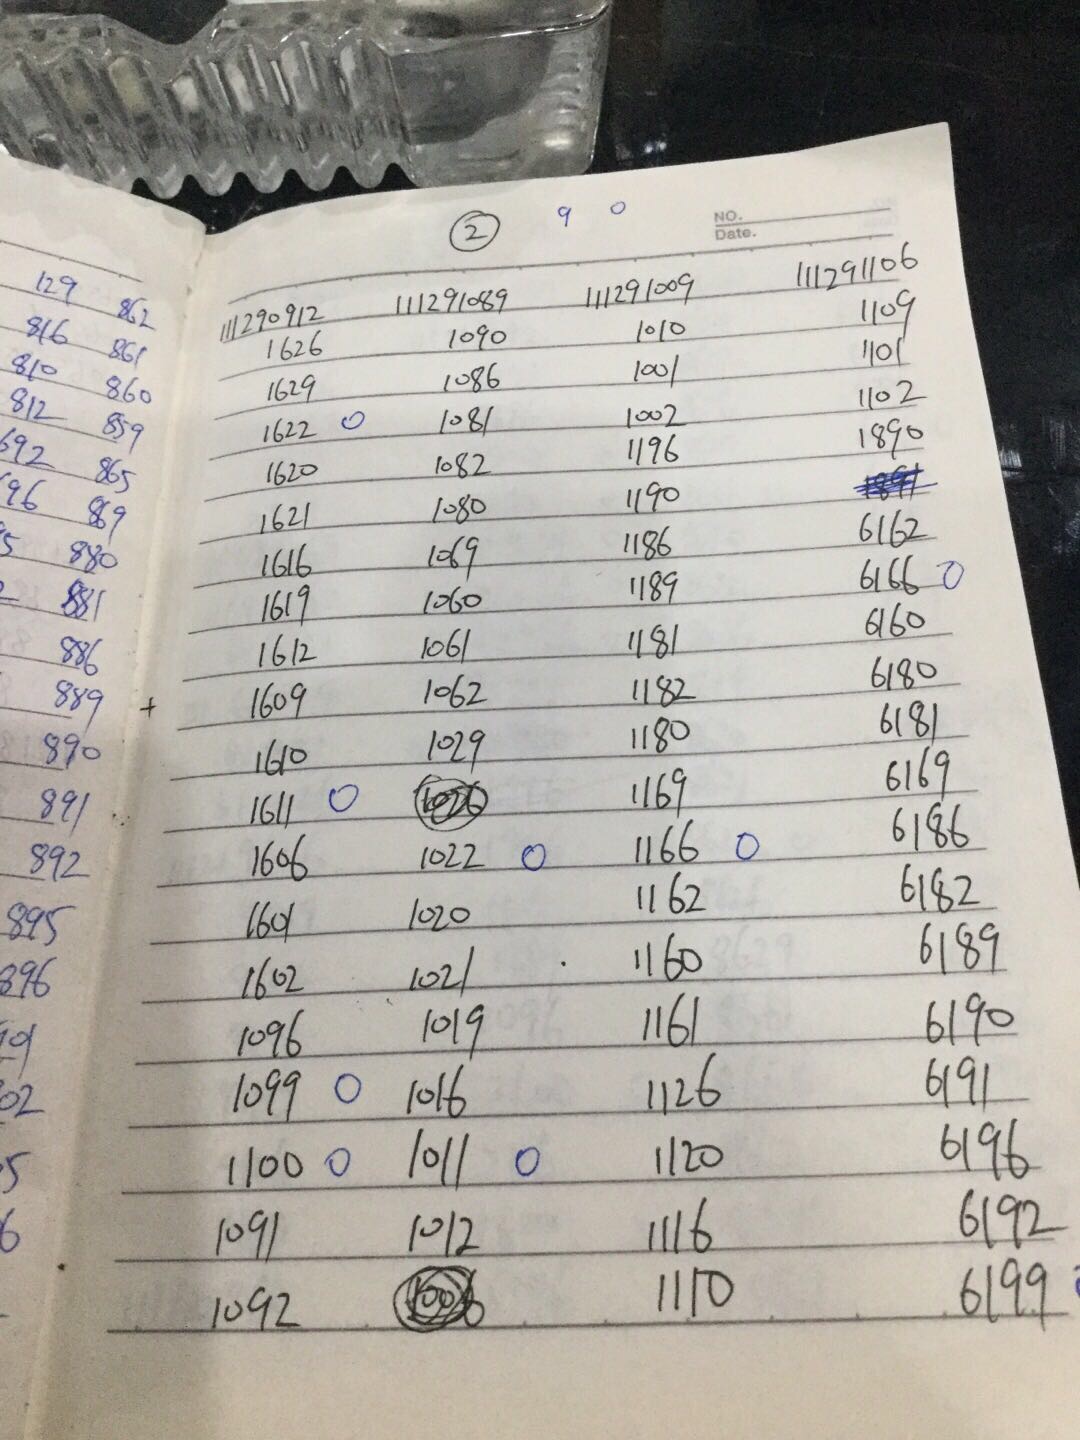 ② 9 0
NO.
Date.
129 862
816 861
810 860
812 859
692 865
96 869
5 880
881
886
889
890
891
892
895
896
901
02
5
6
111290912 111291089 111291009 111291106
1626 1090 1010 1109
1629 1086 1001 1101
1622 0 1081 1002 1102
1620 1082 1196 1890
1621 1080 1190
1616 1069 1186 6162
1619 1060 1189 6166 0
1612 1061 1181 6160
+ 1609 1062 1182 6180
1610 1029 1180 6181
1611 0 1169 6169
1606 1022 0 1166 0 6186
1601 1020 1162 6182
1602 1021 1160 6189
1096 1019 1161 6190
1099 0 1016 1126 6191
1100 0 1011 0 1120 6196
1091 1012 1116 6192
1092 1110 6199